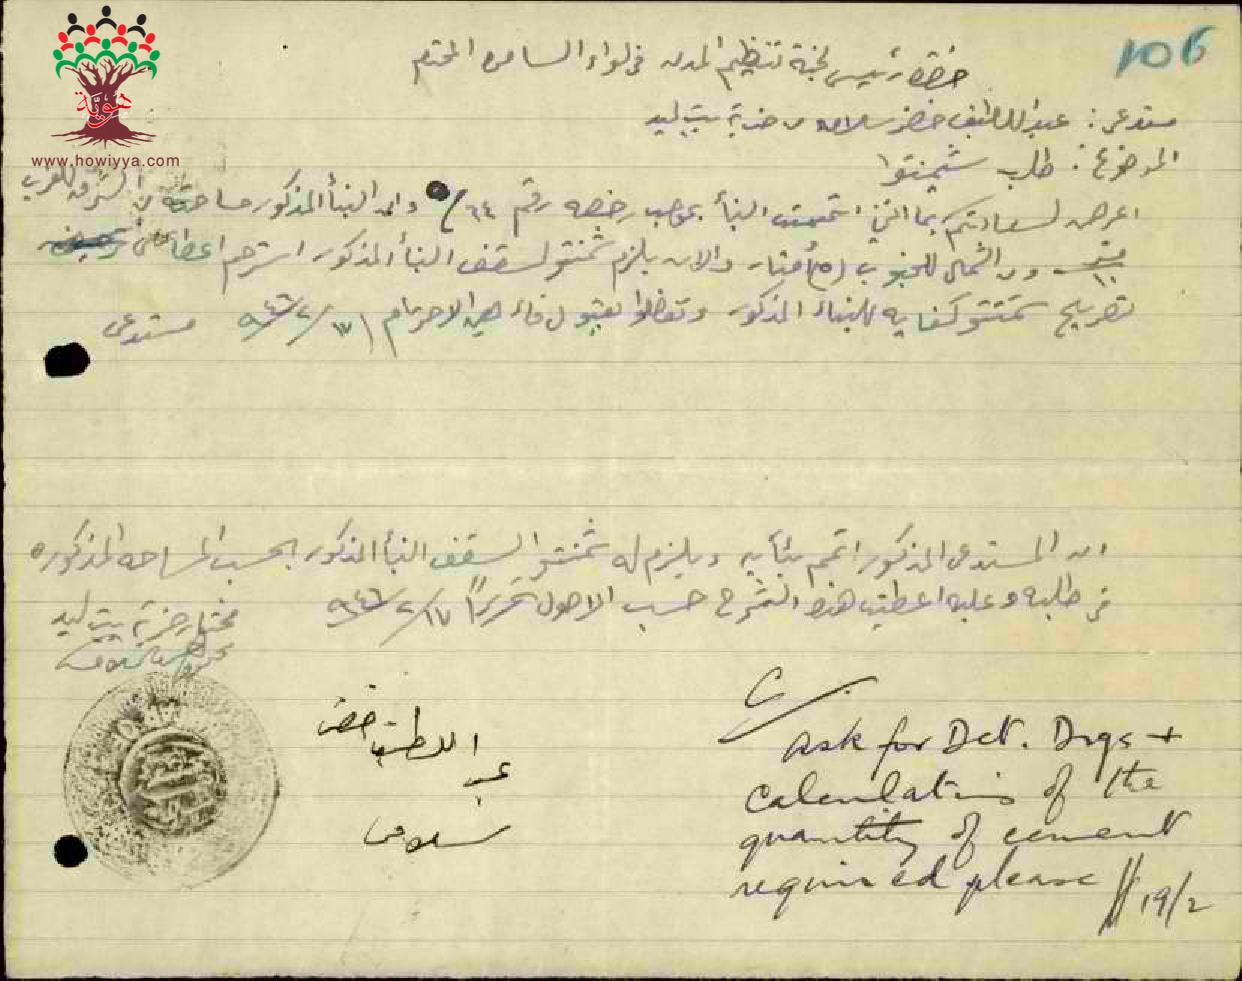 106
هوية
www.howiyya.com
حضرة رئيس لجنة تنظيم المدن في لواء السامرة المحترم
مستدعي: عبد اللطيف خضر سلامه من خربة بيت ليد
الموضوع: طلب شمنتوا
اعرض لسعادتكم بما انني اتممت البنأ بموجب رخصه رقم ٦٤ وان البنأ المذكور مساحته من الشرق للغرب
ومن الشمال للجنوب (٥) أمتار والان يلزم شمنتو لسقف البنأ المذكور استرحم اعطائي
تصريح شمنتو كفايه للبناء المذكور وتفضلوا بقبول فائق الاحترام ١٧/٢/٩٤٦ مستدعي
ان المستدعي المذكور اتمم بنأيه ويلزم له شمنتوا لسقف البنأ المذكور بحسب المساحه المذكوره
في طلبه وعليه اعطيت هذا الشرح حسب الاصول تحريراً ١٧/٢/٩٤٦
مختار خربة بيت ليد
عبد اللطيف خضر
سلامه
C/
Ask for Det. Drgs +
calculations of the
quantity of cement
required please
19/2